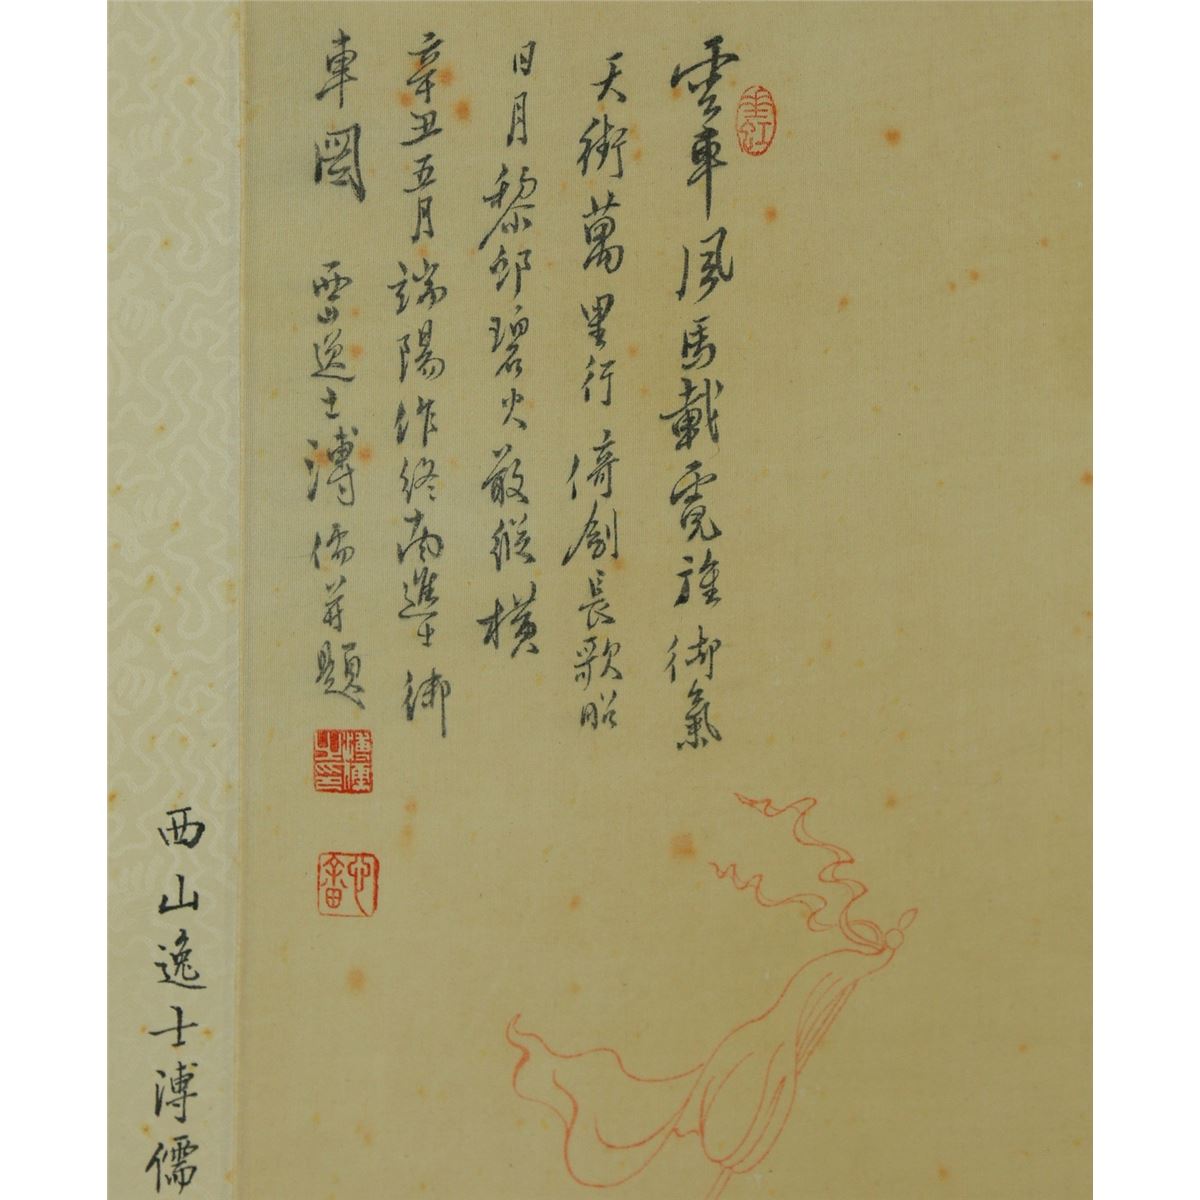 雲車風馬載霓旌御氣
天街萬里行倚劍長歌昭
日月黎邱碧火敢縱橫
辛丑五月端陽作終南進士御
車圖 西山逸士溥儒并題
溥儒之印
西山逸士溥儒